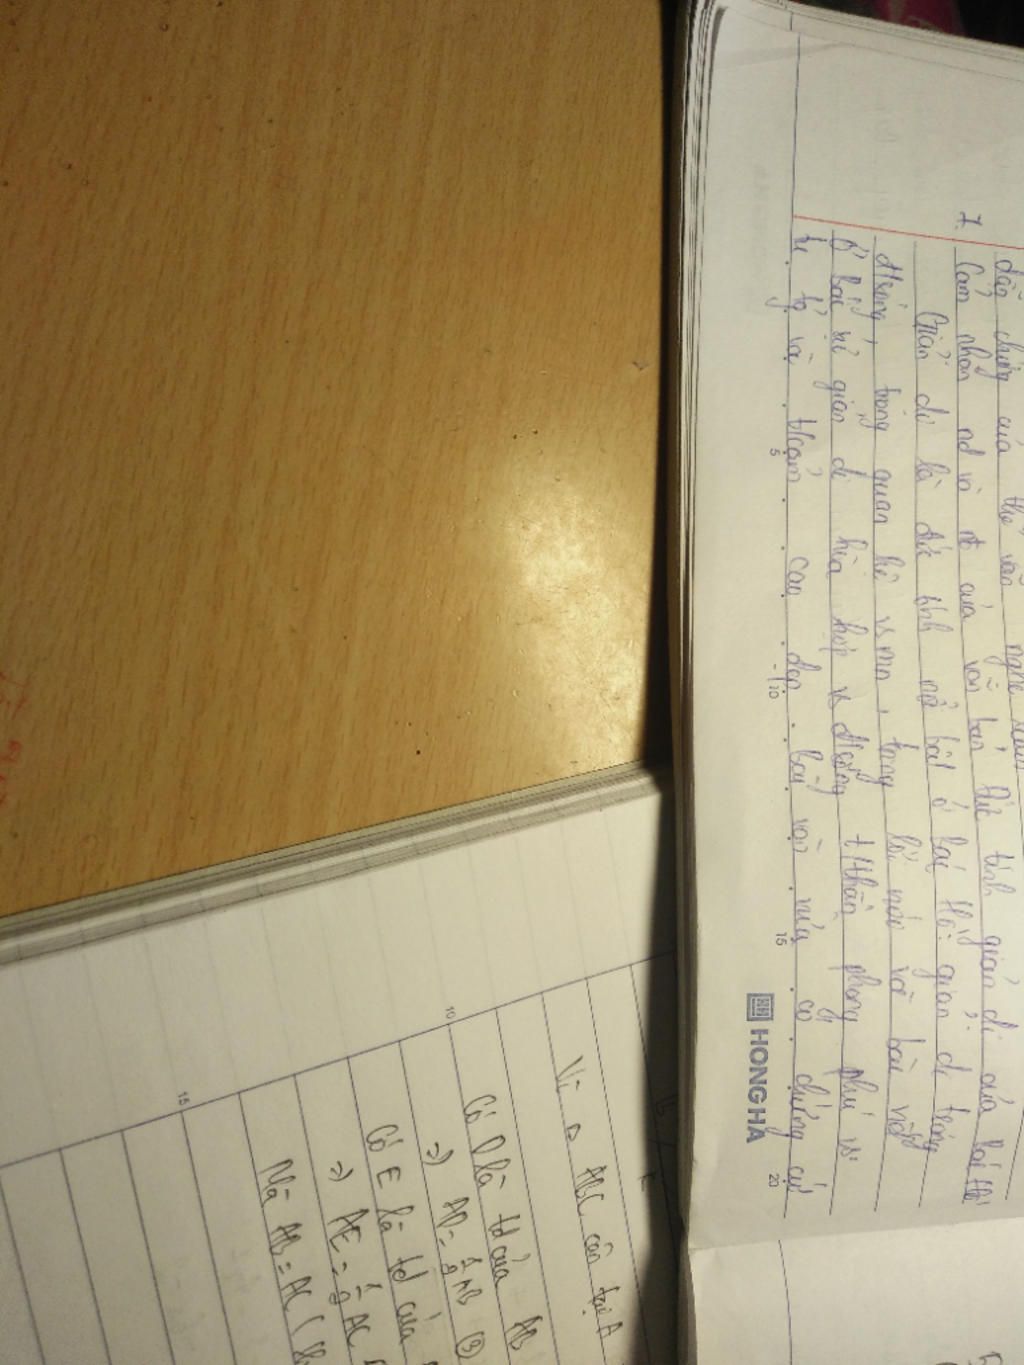 dẫn chứng của thơ văn nghị luận
7. Cảm nhận nd và nt của văn bản đức tính giản dị của bác Hồ
Giản dị là đức tính nổ bật ở bác Hồ: giản dị trong
đ/sống, trong quan hệ vs mn, trong lời nói và bài viết
ở bác sự giản dị hòa hợp vs đ/sống t/thần phong phú vs
tư tg và t/cảm cao đẹp bài văn vừa có chứng cứ
5
10
15
20
HONG HA
10
15
Vì Δ ABC cân tại A
Có D là td của AB
=> AD = 1/2 AB
Có E là td của
=> AE = 1/2 AC
Mà AB = AC (